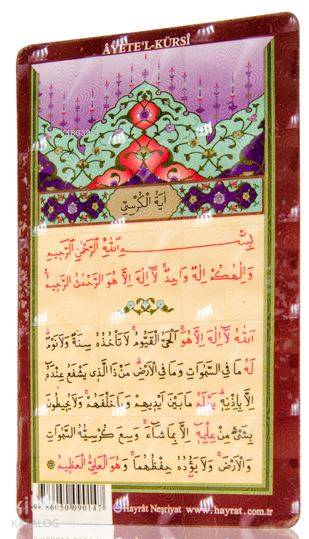 ÂYETE'L-KÜRSÎ
اٰيَةُ الْكُرْسِيّ
بِسْمِ اللّٰهِ الرَّحْمٰنِ الرَّحِيمِ
وَاِلٰهُكُمْ اِلٰهٌ وَاحِدٌ لَٓا اِلٰهَ اِلَّا هُوَ الرَّحْمٰنُ الرَّحِيمُ
اَللّٰهُ لَٓا اِلٰهَ اِلَّا هُوَ اَلْحَىُّ الْقَيُّومُ لَا تَاْخُذُهُ سِنَةٌ وَلَا نَوْمٌ
لَهُ مَا فِى السَّمٰوَاتِ وَمَا فِى الْاَرْضِ مَنْ ذَا الَّذٖى يَشْفَعُ عِنْدَهُ
اِلَّا بِاِذْنِهٖ يَعْلَمُ مَا بَيْنَ اَيْدٖيهِمْ وَمَا خَلْفَهُمْ وَلَا يُحٖيطُونَ
بِشَىْءٍ مِنْ عِلْمِهٖ اِلَّا بِمَا شَٓاءَ وَسِعَ كُرْسِيُّهُ السَّمٰوَاتِ
وَالْاَرْضَ وَلَا يَؤُدُهُ حِفْظُهُمَا وَهُوَ الْعَلِىُّ الْعَظٖيمُ
9 786050 090147
Hayrât Neşriyat www.hayrat.com.tr
KATALOG